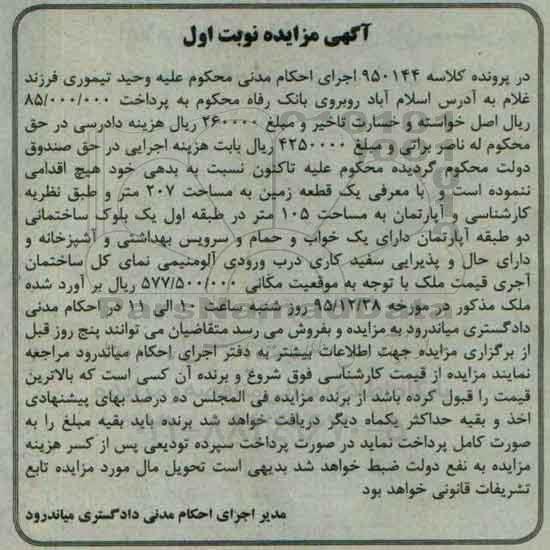 آگهی مزایده نوبت اول
در پرونده کلاسه ۹۵۰۱۴۴ اجرای احکام مدنی محکوم علیه وحید تیموری فرزند
غلام به آدرس اسلام آباد روبروی بانک رفاه محکوم به پرداخت ۸۵/۰۰۰/۰۰۰
ریال اصل خواسته و خسارت تاخیر و مبلغ ۲۶۰۰۰۰ ریال هزینه دادرسی در حق
محکوم له ناصر براتی و مبلغ ۴۲۵۰۰۰۰ ریال بابت هزینه اجرایی در حق صندوق
دولت محکوم گردیده محکوم علیه تاکنون نسبت به بدهی خود هیچ اقدامی
ننموده است و با معرفی یک قطعه زمین به مساحت ۲۰۷ متر و طبق نظریه
کارشناسی و آپارتمان به مساحت ۱۰۵ متر در طبقه اول یک بلوک ساختمانی
دو طبقه آپارتمان دارای یک خواب و حمام و سرویس بهداشتی و آشپزخانه و
دارای حال و پذیرایی سفید کاری درب ورودی آلومنیمی نمای کل ساختمان
آجری قیمت ملک با توجه به موقعیت مکانی ۵۷۷/۵۰۰/۰۰۰ ریال بر آورد شده
ملک مذکور در مورخه ۹۵/۱۲/۲۸ روز شنبه ساعت ۱۰ الی ۱۱ در احکام مدنی
دادگستری میاندرود به مزایده و بفروش می رسد متقاضیان می توانند پنج روز قبل
از برگزاری مزایده جهت اطلاعات بیشتر به دفتر اجرای احکام میاندرود مراجعه
نمایند مزایده از قیمت کارشناسی فوق شروع و برنده آن کسی است که بالاترین
قیمت را قبول کرده باشد از برنده مزایده فی المجلس ده درصد بهای پیشنهادی
اخذ و بقیه حداکثر یکماه دیگر دریافت خواهد شد برنده باید بقیه مبلغ را به
صورت کامل پرداخت نماید در صورت پرداخت سپرده تودیعی پس از کسر هزینه
مزایده به نفع دولت ضبط خواهد شد بدیهی است تحویل مال مورد مزایده تابع
تشریفات قانونی خواهد بود
مدیر اجرای احکام مدنی دادگستری میاندرود
ParsNamadData